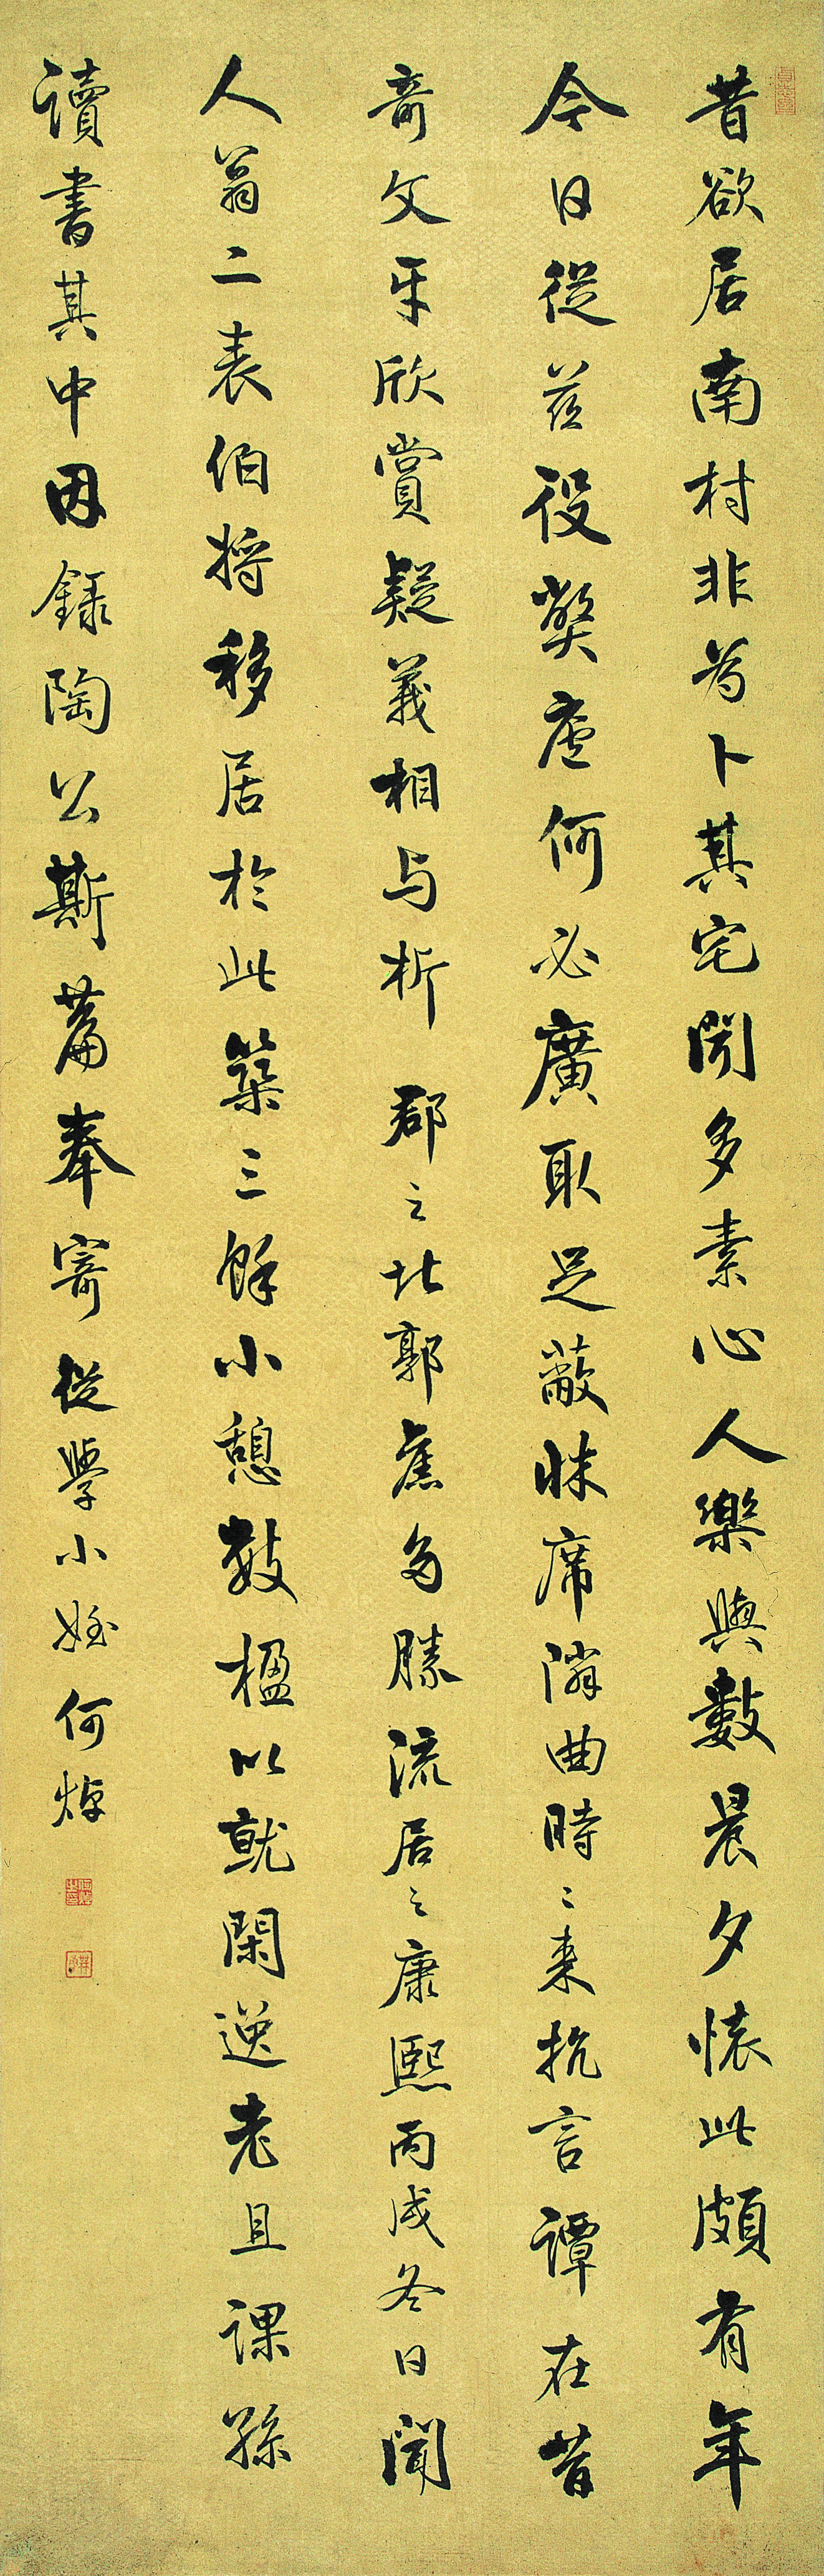 昔欲居南村非为卜其宅闻多素心人樂與數晨夕懷此頗有年
今日從茲役獘廬何必廣取足蔽牀席隣曲時〻来抗言譚在昔
奇文幸欣賞疑義相与析 郡之北郭舊多勝流居之康熙丙戌冬日聞
人翁二表伯将移居於此築三餘小憩數楹以就閑逸老且課孫
讀書其中因錄陶公斯篇奉寄従學小姪何焯